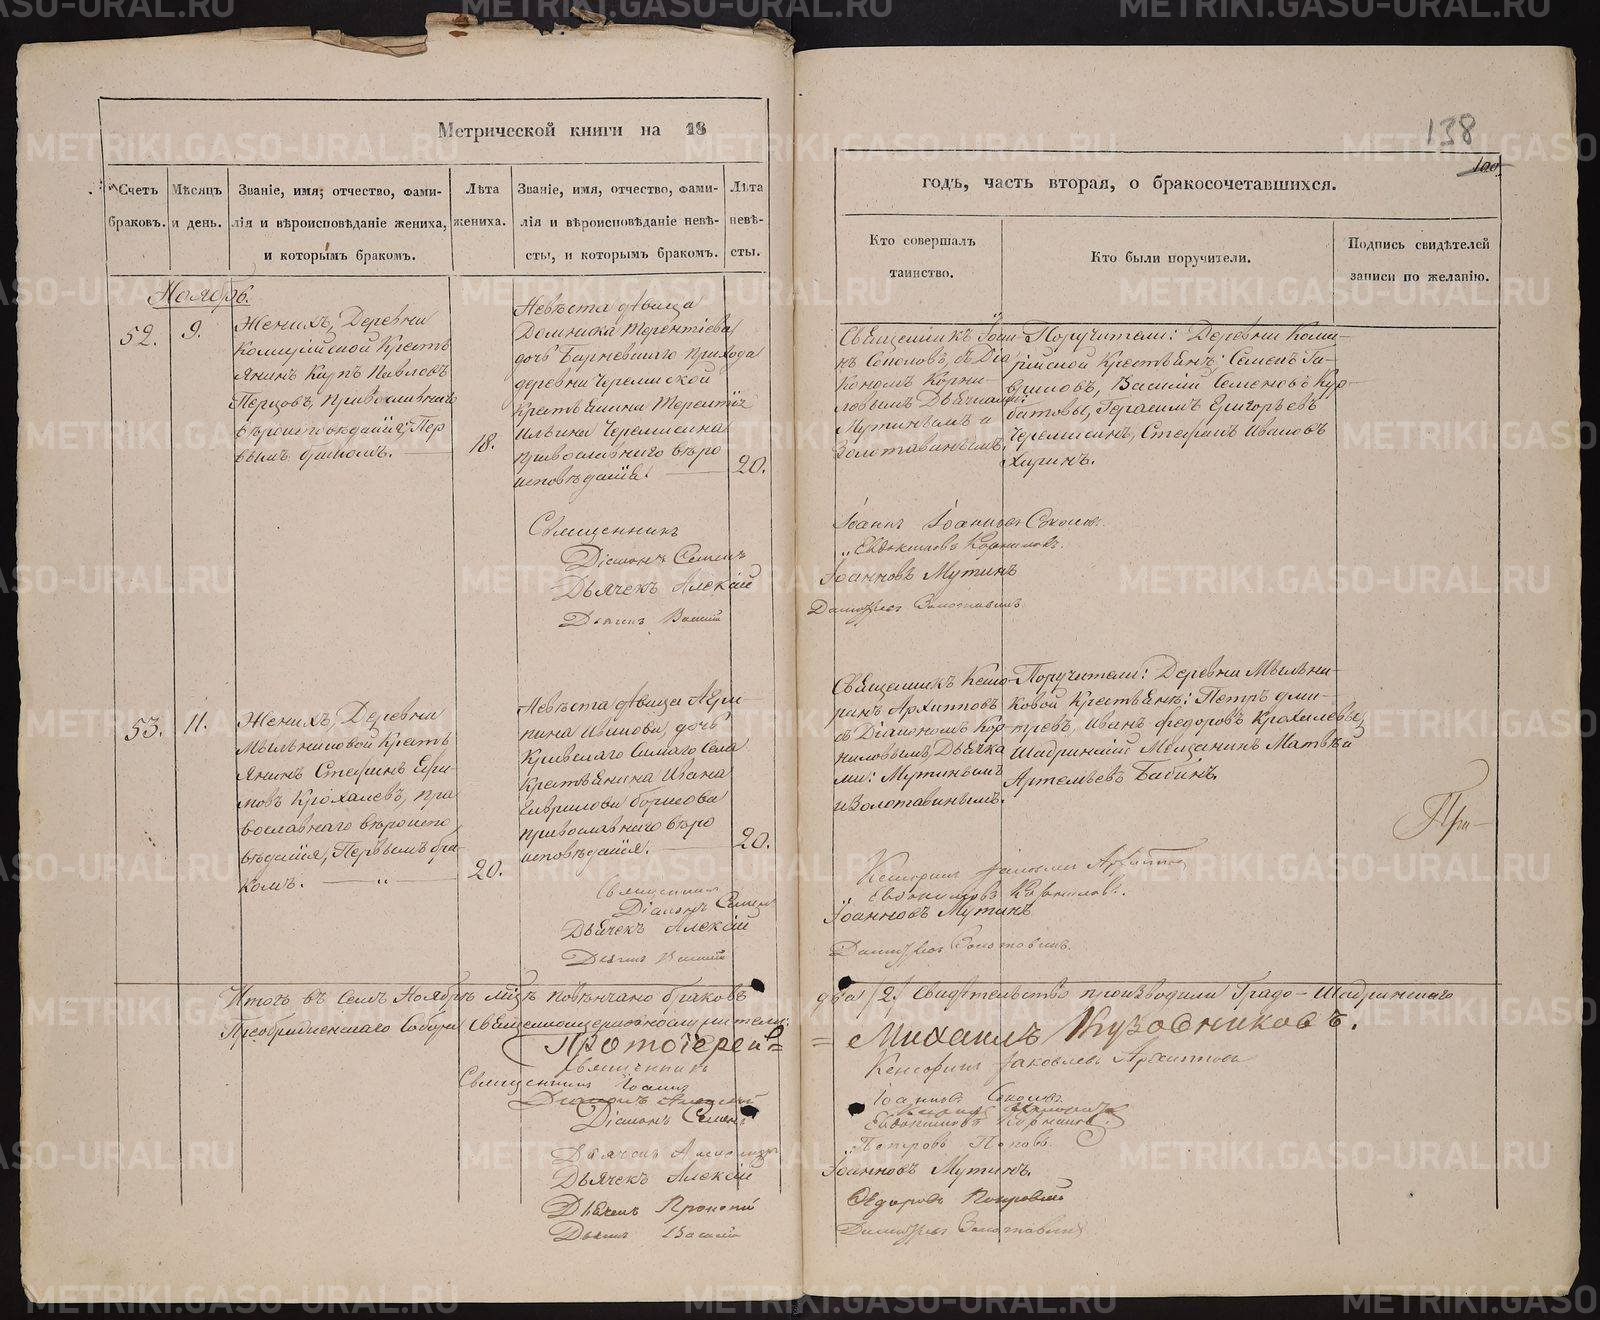 Метрической книги на 18
Счетъ браковъ.
Мѣсяцъ и день.
Званіе, имя, отчество, фами-
лія и вѣроисповѣданіе жениха,
и которымъ бракомъ.
Лѣта жениха.
Званіе, имя, отчество, фами-
лія и вѣроисповѣданіе невѣ-
сты, и которымъ бракомъ.
Лѣта невѣ-
сты.
Ноябрь.
52.
9.
Женихъ, Деревни
Крестъ
янинъ Карпъ Павловъ
Перцовъ, Православнаго
вѣроисповѣданія, Пер
вымъ бракомъ.
18.
Невѣста дѣвица
Домника Терентіева
дочь Барневскаго прихода
деревни Черемиской
Крестьянина Терентія
Ильина Черемисина
православнаго вѣро
исповѣданія.
20.
Священникъ
Діаконъ Семенъ
Дьячекъ Алексій
Василій
53.
11.
Женихъ, Деревни
Мыльниковой Кресть
янинъ Стефанъ Ефи-
мовъ Крохалевъ, пра
вославнаго вѣроиспо
вѣданія, Первымъ бра-
комъ. — „ —
20.
Невѣста дѣвица Агри-
пина Иванова, дочь
Кривскаго самаго села
Крестьянина Ивана
Гаврилова Борисова
православнаго вѣро
исповѣданія.
20.
Священникъ
Діаконъ Семенъ
Дьячекъ Алексій
Василій
Итого въ семъ Ноябрѣ мцѣ повѣнчано браковъ
Преображенскаго Собора священноцерковнослужители:
Протоіерей =
Священникъ
Священникъ Іоаннъ
Діаконъ Семенъ
Дьячекъ
Дьячекъ Алексій
Дьячекъ
Василій
138
100.
годъ, часть вторая, о бракосочетавшихся.
Кто совершалъ
таинство.
Кто были поручители.
Подпись свидѣтелей
записи по желанію.
Священникъ Іоан-
нъ Соколовъ, съ Діа
кономъ Корни-
ловымъ Дьячками:
Мутинымъ и
Золотавинымъ.
Поручители: Деревни
Крестьянъ: Семенъ Га-
вриловъ, Василій Семеновъ Кур-
батовы, Герасимъ Григорьевъ
Черемисинъ, Стефанъ Ивановъ
Іоаннъ Іоанновъ Соколовъ.
„ Евдокимовъ Корниловъ.
Іоанновъ Мутинъ
Димитріевъ Золотавинъ.
Священникъ Ксено-
фонтъ Архиповъ
съ Діакономъ Кор-
ниловымъ, Дьячка
ми: Мутинымъ
и Золотавинымъ.
Поручители: Деревни Мыльни-
ковой Крестьянъ: Петръ Дми-
тріевъ, Иванъ Федоровъ Крохалевы,
Шадринскій Мещанинъ Матвѣй
Артемьевъ Бабинъ.
При-
Яковлевъ
Евдокимовъ Корниловъ.
Іоанновъ Мутинъ
Димитріевъ Золотавинъ.
два /2./ Свидѣтельство производили Градо-Шадринскаго
= Михаилъ Кузовниковъ.
Яковлевъ
Іоанновъ Соколовъ.
Евдокимовъ Корниловъ.
„ Петровъ Поповъ.
Іоанновъ Мутинъ.
Федоровъ
Димитріевъ Золотавинъ
METRIKI.GASO-URAL.RU